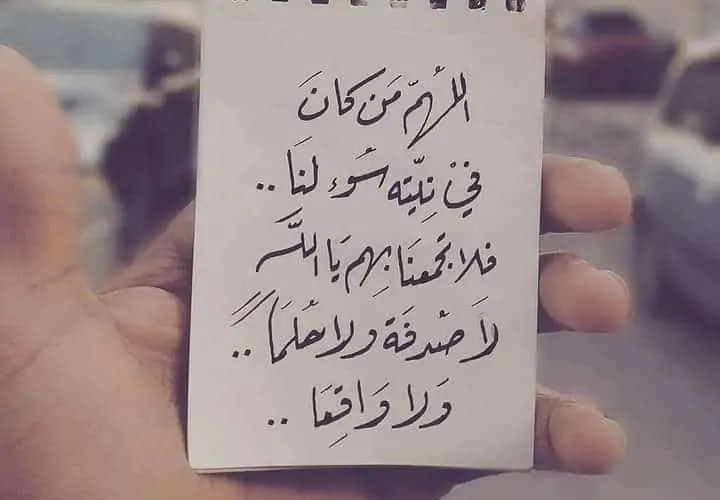 اللهُمّ مَن كانَ
فيْ نِيّته سُوء لنَا ..
فلا تجمعَنا بِهم يَا اللَّه
لاَ صْدفَة ولا حُلمَاً ..
وَلا وَاقِعَا ..